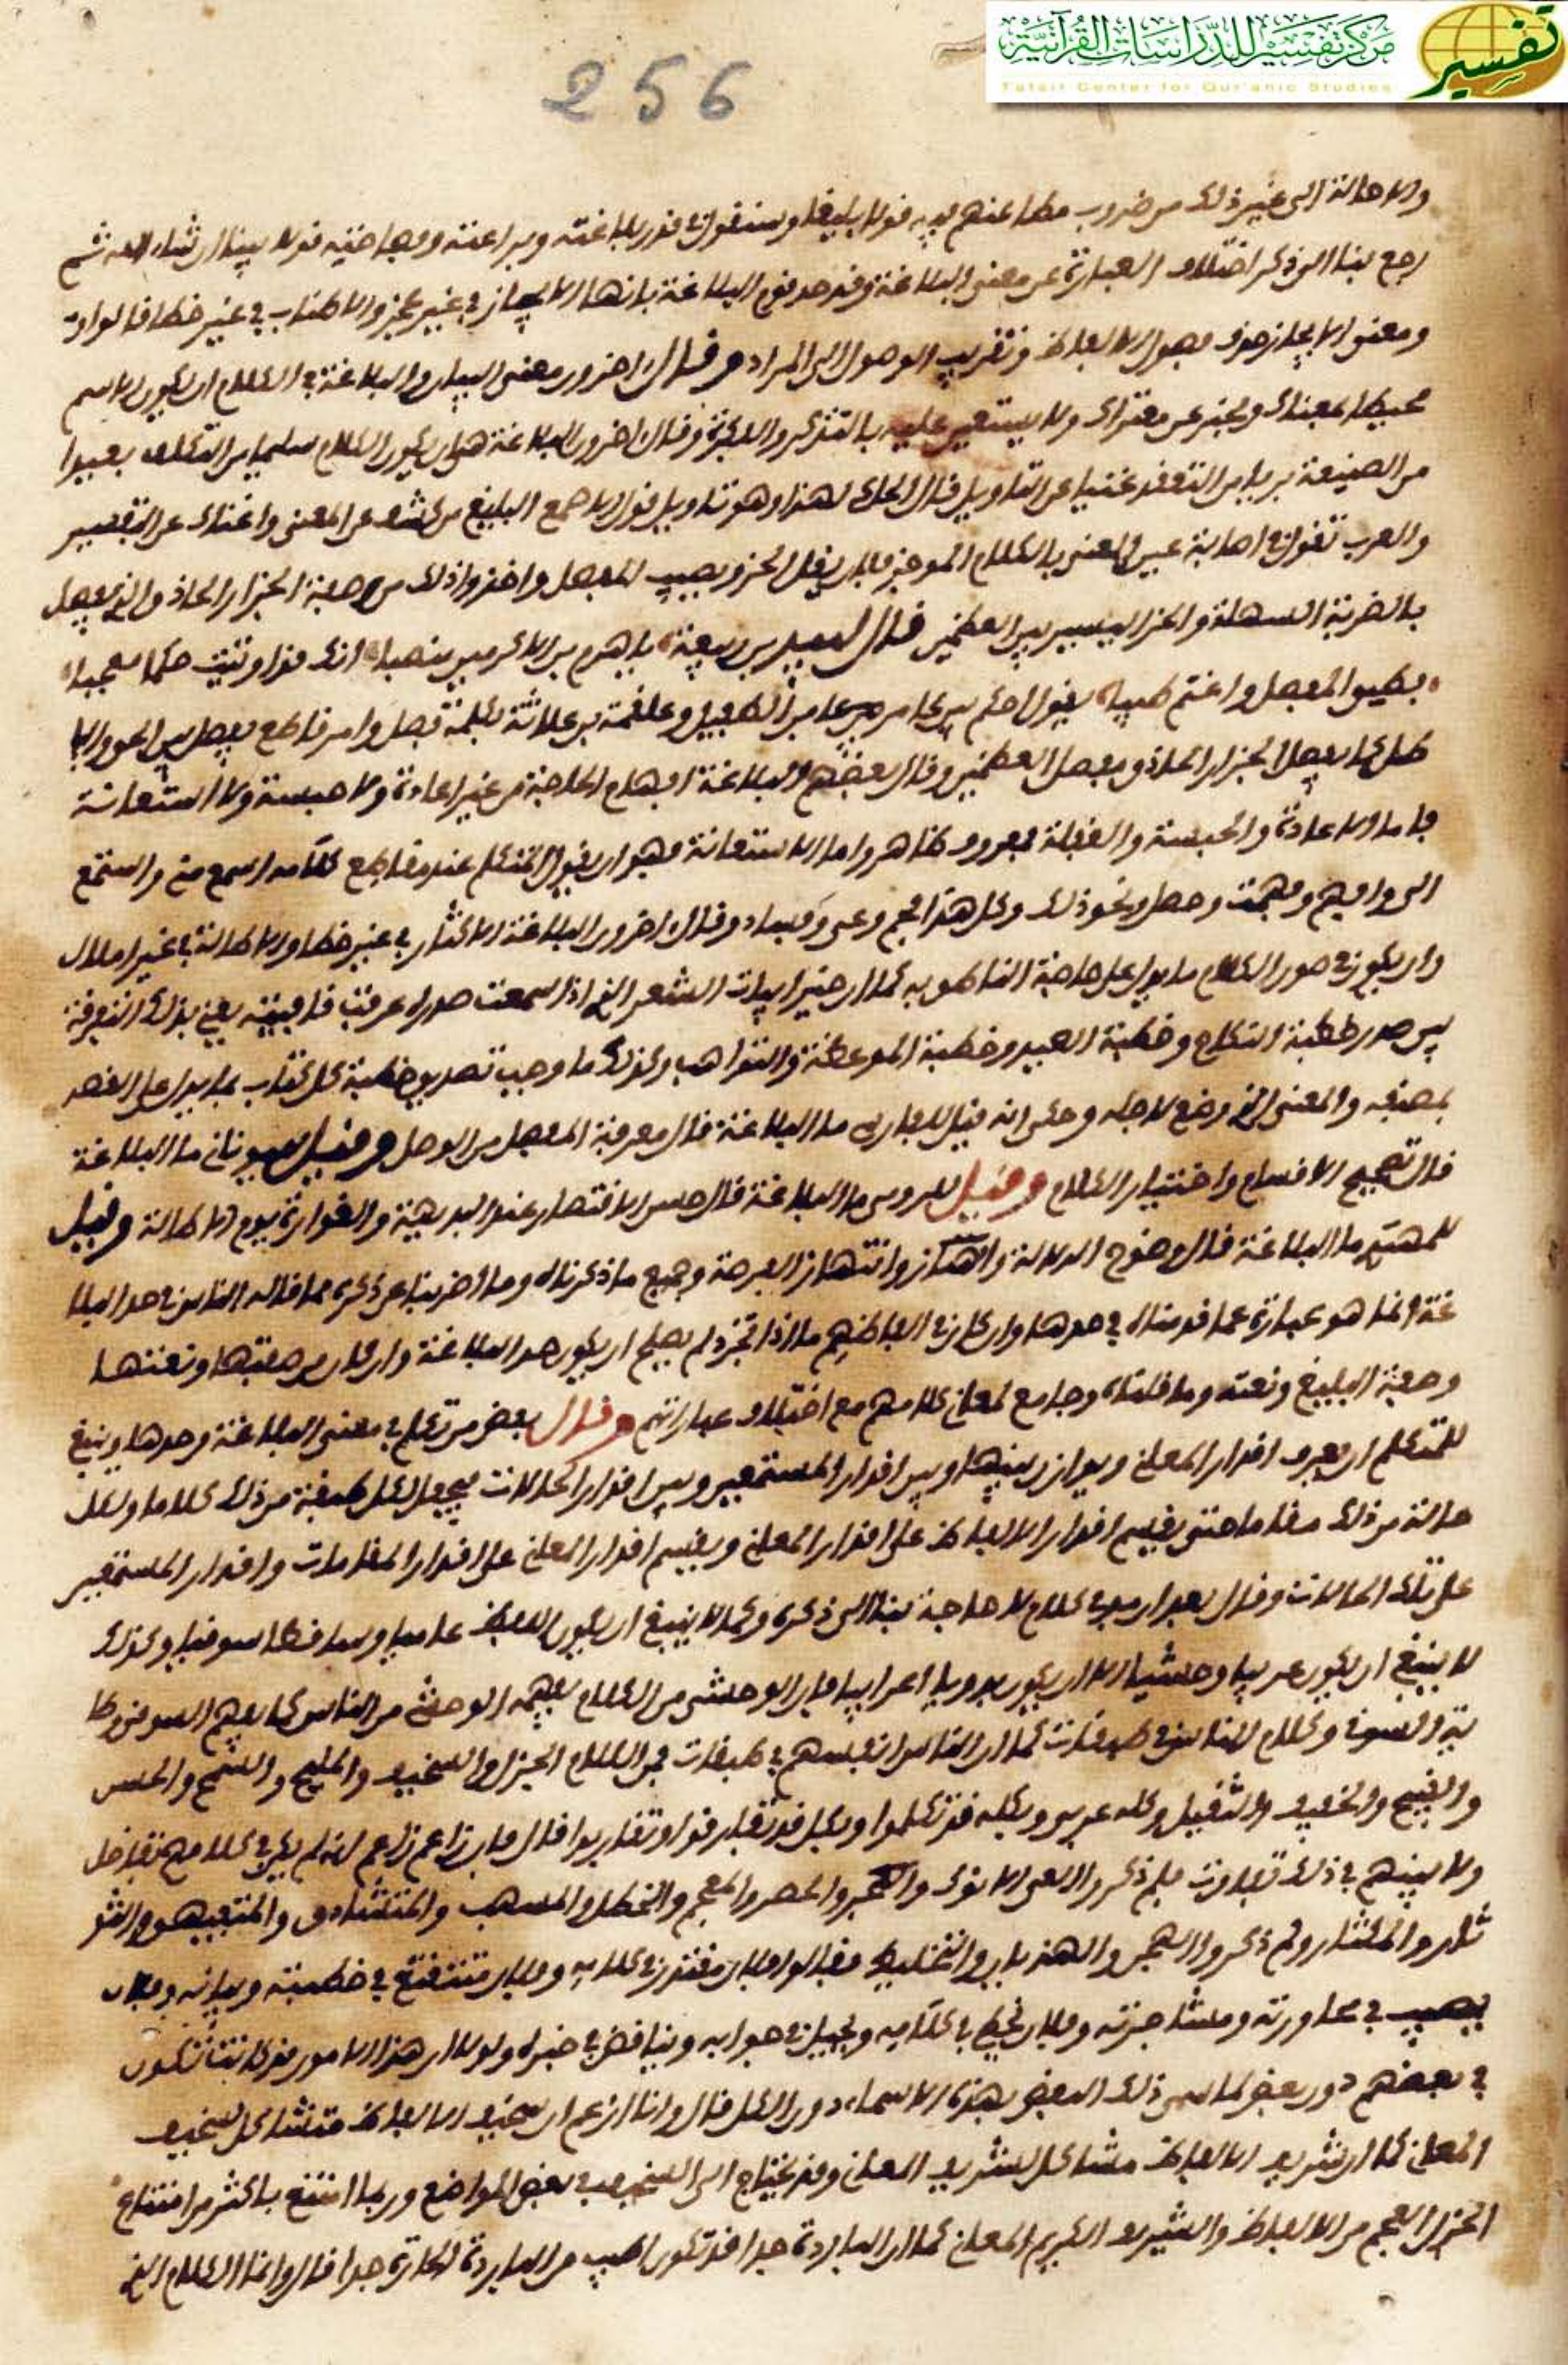 مركز تفسير للدراسات القرآنية
Tafsir Center for Qur'anic Studies
تفسير
256
والاحالة الى غير ذلك من ضروب مطاعنهم فيه قولا بليغا وسنقول في قدر بلاغته وبراعته وفصاحته قولا بينا ان شاء الله ثم
رجع بنا الى ذكر اختلاف العبارة عن معنى البلاغة وقد حد قوم البلاغة بانها الايجاز في غير عجز والاطناب في غير خطا قالوا
ومعنى الايجاز حذف فضول الالفاظ وتقريب الوصول الى المراد وقال اخرون معنى البيان والبلاغة في الكلام ان يكون الاسم
محيطا بمعناك ويخبر عن مغزاك ولا يستعين عليه بالتذكر والفكرة وقال اخرون البلاغة هي ان يكون الكلام سليما من التكلف بعيدا
من الصنيعة بريا من التعقد غنيا عن التاويل قال الحاك لهذا وهو تاويل قول الاصمع البليغ من كشف عن المعنى واغناك عن التفسير
والعرب تقول في اصابة عين المعنى بالكلام الموجز فلان يفل الحز ويصيب المفصل واخذوا ذلك من صفة الجزار الحاذق الذي يفصل
بالضربة السهلة والحز اليسير بين العظمين قال لبيد بن ربيعة يا هرم بن الاكرمين منصبا انك قد اوتيت حكما معجبا
فطبق المفصل واغنم طيبا يقول احكم بين عامر بن الطفيل وعلقمة بن علاثة بكلمة فصل وامر قاطع يفصل بين الحق والبا
طل كما يفصل الجزار الحاذق مفصل العظمين وقال بعضهم البلاغة افهام الحاجة من غير اعادة ولا حبسة ولا استعانة
فاما الاعادة والحبسة والغفلة فمعروف ظاهر واما الاستعانة فهو ان يقول المتكلم عند مقاطع كلامه اسمع مني واستمع
الي وافهم وفهمت وحصل ونحو ذلك وكل هذا فج وعي وفساد وقال اخرون البلاغة الاكثار في غير خطا والاطالة في غير املال
وان يكون في صدر الكلام ما يدل على حاجة الناطق به كما ان خير ابيات الشعر الذي اذا سمعت صدره عرفت قافيته يعني بذلك التفرقة
بين صدر خطبة النكاح وخطبة العيد وخطبة الموعظة والتواهب وكذلك ما وجب تصدير خطبة كل كتاب بما يدل على الغرض
بمصنفه والمعنى الذي وضع لاجله وحكى انه قيل للفارسي ما البلاغة قال معرفة الفصل من الوصل وقيل لليوناني ما البلاغة
قال تصحيح الاقسام واختيار الكلام وقيل للرومي ما البلاغة قال حسن الاقتصار عند البديهة والغزارة يوم الاطالة وقيل
للهندي ما البلاغة قال وضوح الدلالة وانتهاز الفرصة وجميع ما ذكرناه وما اضربنا عن ذكره مما قاله الناس في حد البلا
غة انما هو عبارة عما قدمناه في حدها وان كان في الفاظهم ما اذا تجرد لم يصلح ان يكون حد البلاغة وان كان من صفتها ونعتها
وصفة البليغ ونعته وما قلناه وجامع لمعاني كلامهم مع اختلاف عباراتهم وقال بعض من تكلم في معنى البلاغة وحدها وينبغي
للمتكلم ان يعرف اقدار المعاني ويوازن بينها وبين اقدار المستمعين وبين اقدار الحالات فيجعل لكل طبقة من ذلك كلاما ولكل
حالة من ذلك مقاما حتى يقسم اقدار الالفاظ على اقدار المعاني ويقسم اقدار المعاني على اقدار المقامات واقدار المستمعين
على تلك الحالات وقال بعد ان مر في كلام لا حاجة بنا الى ذكره وكما لا ينبغي ان يكون اللفظ عاميا وساقطا سوقيا وكذلك
لا ينبغي ان يكون غريبا وحشيا الا ان يكون بدويا اعرابيا فان الوحشي من الكلام يفهمه الوحشي من الناس كما يفهم السوقي رطا
نة السوقي وكلام الناس في طبقات كما ان الناس انفسهم في طبقات فمن الكلام الجزل والسخيف والمليح والسمج والحسن
والقبيح والخفيف والثقيل وكله عربي وبكله قد تكلموا وبكل قد تمادحوا وتعايبوا قال فان زاعم زعم انه لم يكن في كلامهم تفاضل
ولا بينهم في ذلك تفاوت فلم ذكروا العي الانوك والحصر والمفحم والخطل والمسهب والمتشدق والمتفيهق والثر
ثار والمكثار ولم ذكروا الهجر والهذيان والتخليط وقالوا فلان يتلهيع في خطبته وبيانه وفلان
يصيب في محاورته ومشاجرته وفلان يخطي في كلامه ويحيل في جوابه ويناقض في خبره ولولا ان هذه الامور قد كانت تكون
في بعضهم دون بعض لما سمي ذلك البعض بهذه الاسماء دون الكل قال وانا ازعم ان سخيف الالفاظ مشاكل لسخيف
المعاني كما ان شريف الالفاظ مشاكل لشريف المعاني وقد يحتاج الى السخيف في بعض المواضع وربما امتع باكثر من امتاع
الجزل الفخم من الالفاظ والشريف الكريم المعاني كما ان الباردة جدا قد تكون اطيب من الباردة الحارة جدا قال وانما الكلام الذي